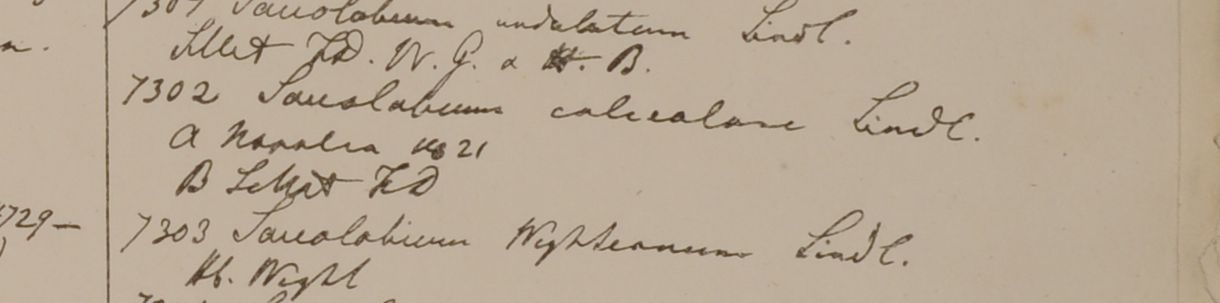 7301 Saccolabium undulatum Lindl.
Sillet F.D. W. G. & H. B.
7302 Saccolabium calceolare Lindl.
A Napalia 1821
B Sillet F.D
1729 —
7303 Saccolabium Wightianum Lindl.
Hb. Wight